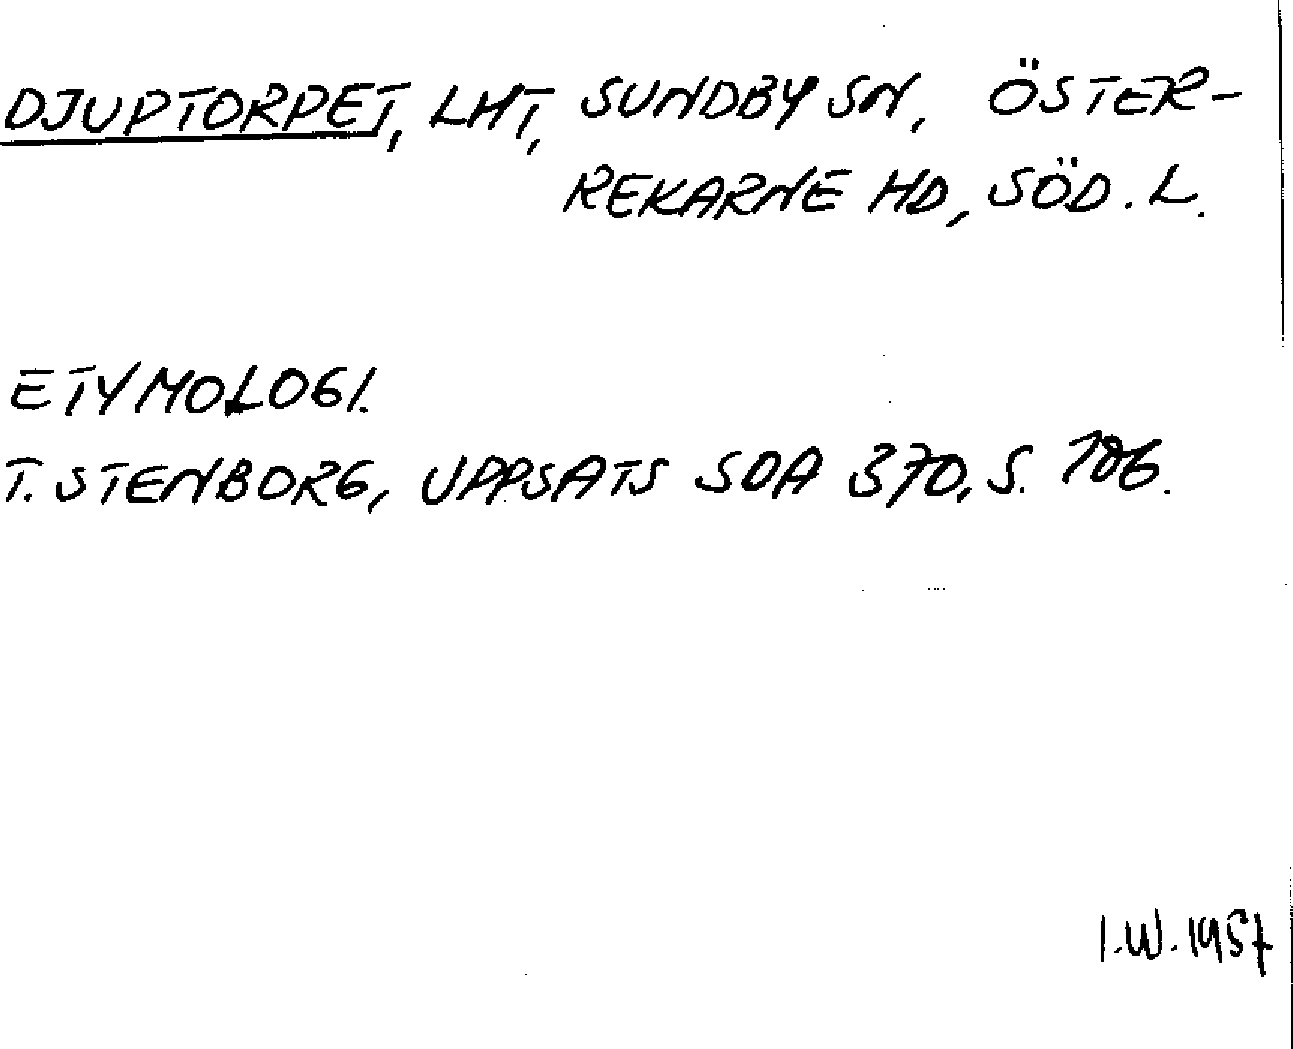 DJUPTORPET, LHT, SUNDBY SN, ÖSTER-
REKARNE HD, SÖD. L.
ETYMOLOGI.
T. STENBORG, UPPSATS SOA 370, S. 186.
I.W. 1957